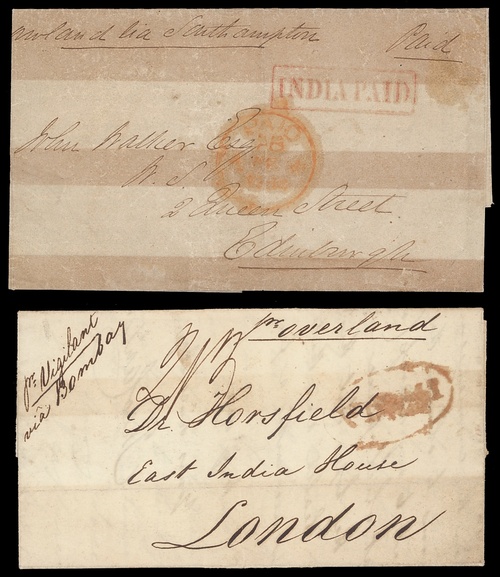 overland via Southampton
Paid
INDIA PAID
John Walker Esqr
W. S.
2 Queen Street
Edinburgh
pr overland
pr Vigilant
viâ Bombay
Dr. Horsfield
East India House
London